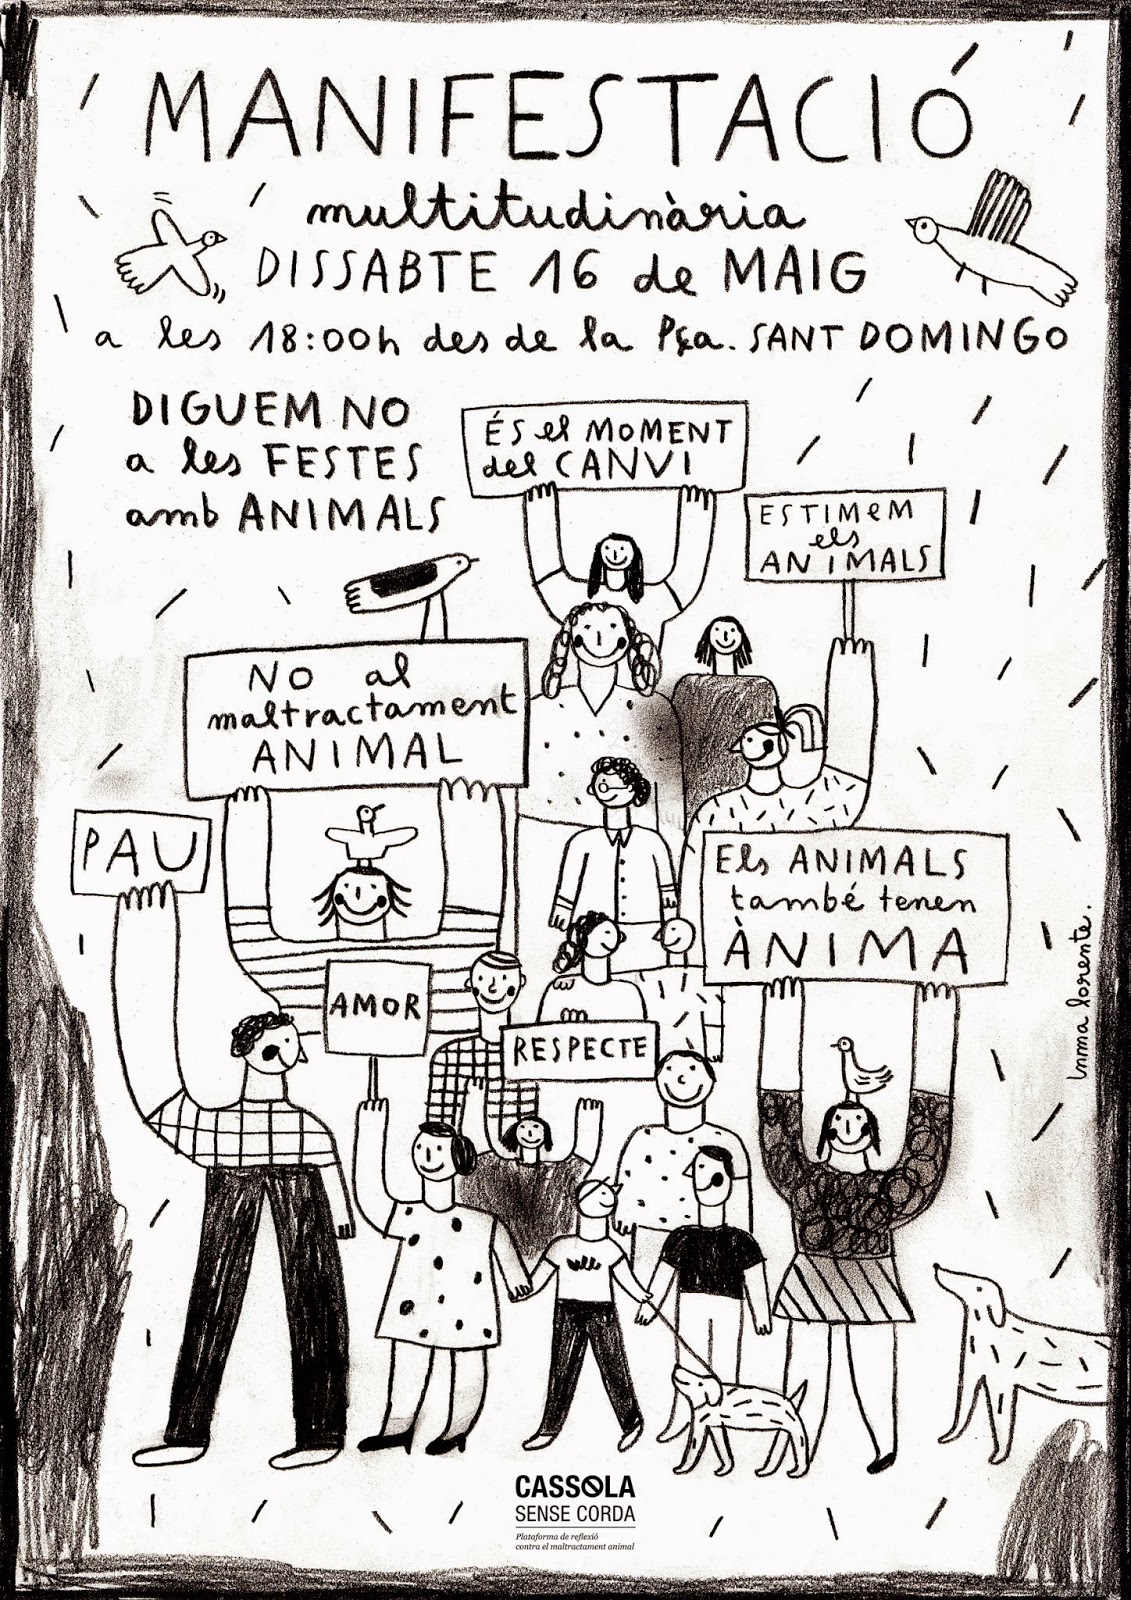 MANIFESTACIÓ
multitudinària
DISSABTE 16 de MAIG
a les 18:00h des de la Pça. SANT DOMINGO
DIGUEM NO
a les FESTES
amb ANIMALS
ÉS el MOMENT
del CANVI
ESTIMEM
els
ANIMALS
NO al
maltractament
ANIMAL
PAU
Els ANIMALS
també tenen
ÀNIMA
AMOR
RESPECTE
Inma lorente.
CASSOLA
SENSE CORDA
Plataforma de reflexió
contra el maltractament animal